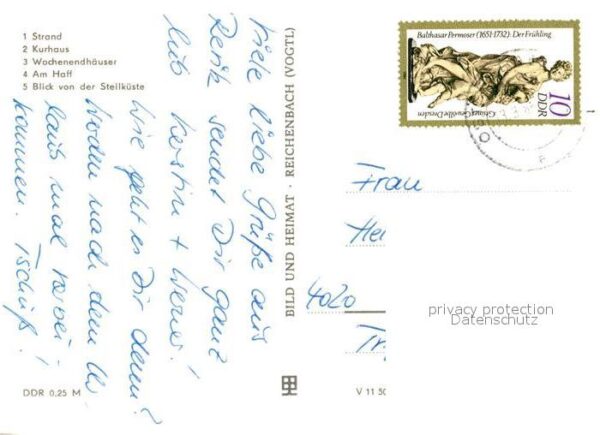 1 Strand
2 Kurhaus
3 Wochenendhäuser
4 Am Haff
5 Blick von der Steilküste
Viele liebe Grüße aus
Rerik sendet Dir ganz
lieb
Kerstin + Werner!
Wie geht es Dir denn?
Komm nach dem Ur-
laub mal vorbei
kommen. Tschüß!
DDR 0,25 M
BILD UND HEIMAT · REICHENBACH (VOGTL)
V 11 50
Balthasar Permoser (1651-1732): Der Frühling
Grünes Gewölbe Dresden
DDR
10
Frau
He
4020
Tr
privacy protection
Datenschutz